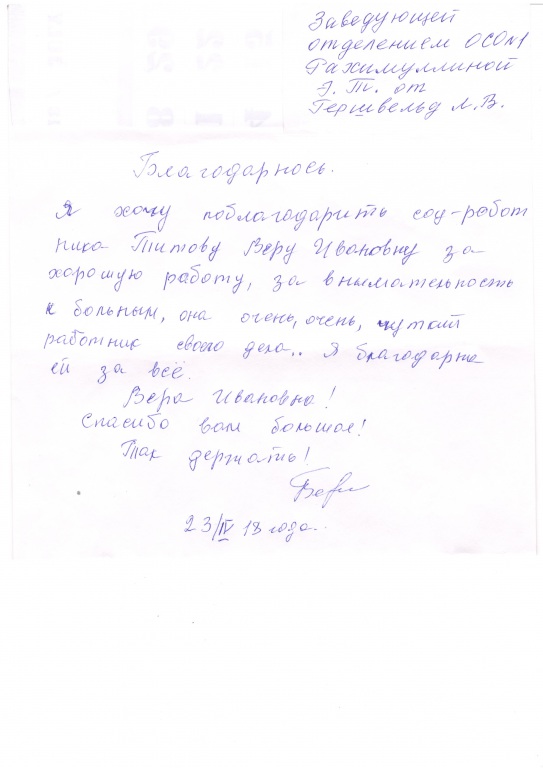 Заведующей
отделением ОСО№1
Рахимуллиной
от
Гершвельд Л.В.
Благодарность.
Я хочу поблагодарить соц-работ
ника Титову Веру Ивановну за
хорошую работу, за внимательность
к больным, она очень, очень, чуткий
работник своего дела.. Я благодарна
ей за всё.
Вера Ивановна!
Спасибо вам большое!
Так держать!
23/IV 18 года..